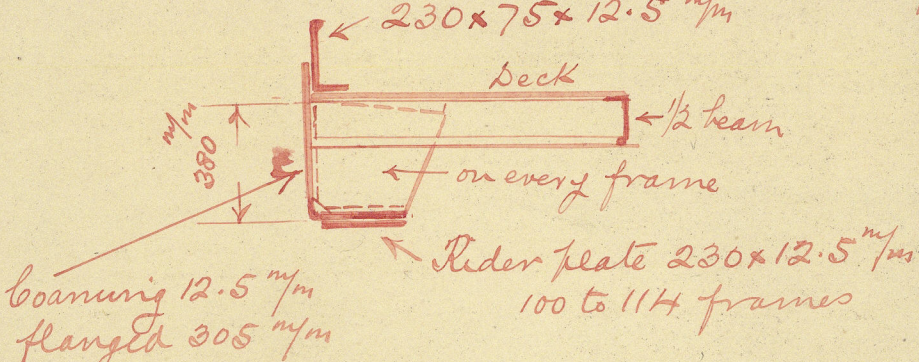 230 x 75 x 12.5 m/m
Deck
1/2 beam
380 m/m
on every frame
Rider plate 230 x 12.5 m/m
100 to 114 frames
Coaming 12.5 m/m
flanged 305 m/m